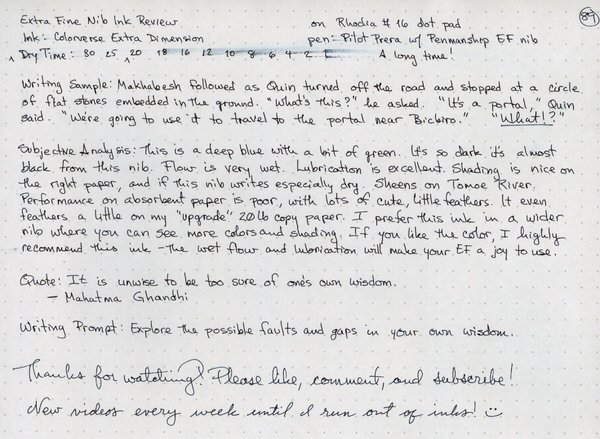 Extra Fine Nib Ink Review on Rhodia #16 dot pad 89
Ink: Colorverse Extra Dimension pen: Pilot Prera w/ Penmanship EF nib
Dry Time: 30 25 20 18 16 12 10 8 6 4 2 A long time!
Writing Sample: Makhabesh followed as Quin turned off the road and stopped at a circle
of flat stones embedded in the ground. "What's this?" he asked. "It's a portal," Quin
said. "We're going to use it to travel to the portal near Bicbiro." "What!?"
Subjective Analysis: This is a deep blue with a bit of green. It's so dark it's almost
black from this nib. Flow is very wet. Lubrication is excellent. Shading is nice on
the right paper, and if this nib writes especially dry. Sheens on Tomoe River.
Performance on absorbent paper is poor, with lots of cute, little feathers. It even
feathers a little on my "upgrade" 20lb copy paper. I prefer this ink in a wider
nib where you can see more colors and shading. If you like the color, I highly
recommend this ink - the wet flow and lubrication will make your EF a joy to use.
Quote: It is unwise to be too sure of one's own wisdom.
- Mahatma Ghandhi
Writing Prompt: Explore the possible faults and gaps in your own wisdom.
Thanks for watching! Please like, comment, and subscribe!
New videos every week until I run out of inks! :)